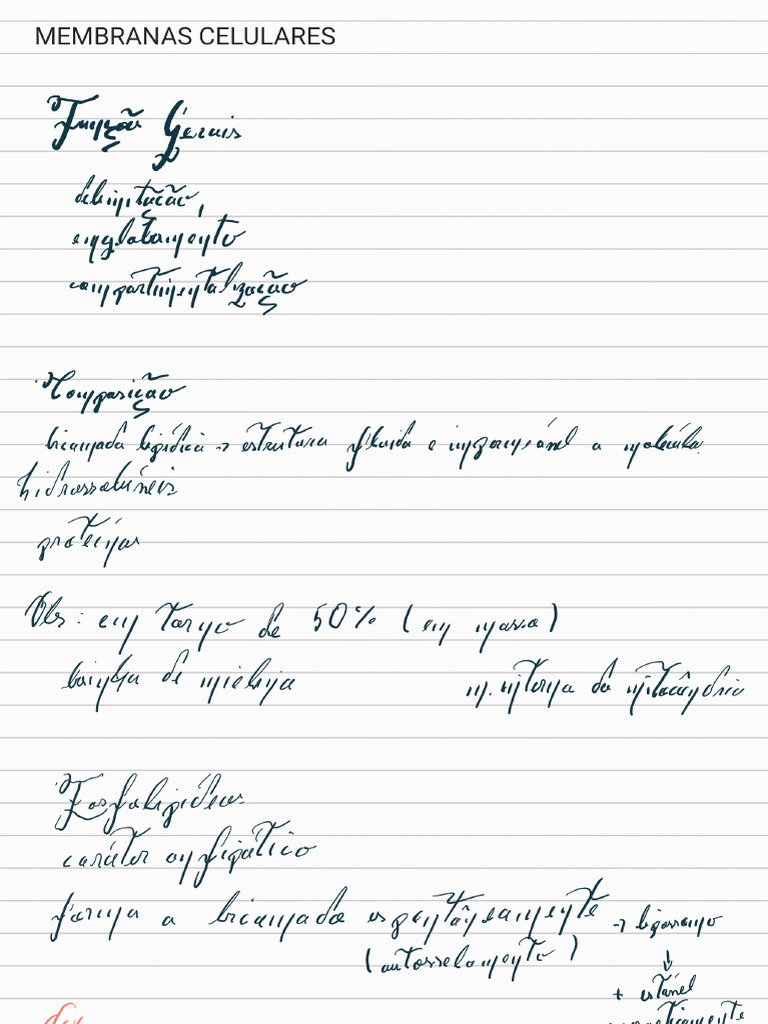 MEMBRANAS CELULARES
Função Gerais
delimitação,
englobamento
compartimentalização
Composição
bicamada lipídica → estrutura fluida e impermeável a molécula
hidrossolúveis
proteínas
Obs: em torno de 50% (em massa)
bainha de mielina m. interna da mitocôndria
Fosfolipídeos
caráter anfipático
forma a bicamada espontâneamente → lipossomo
(autosselamento) ↓
+ estável